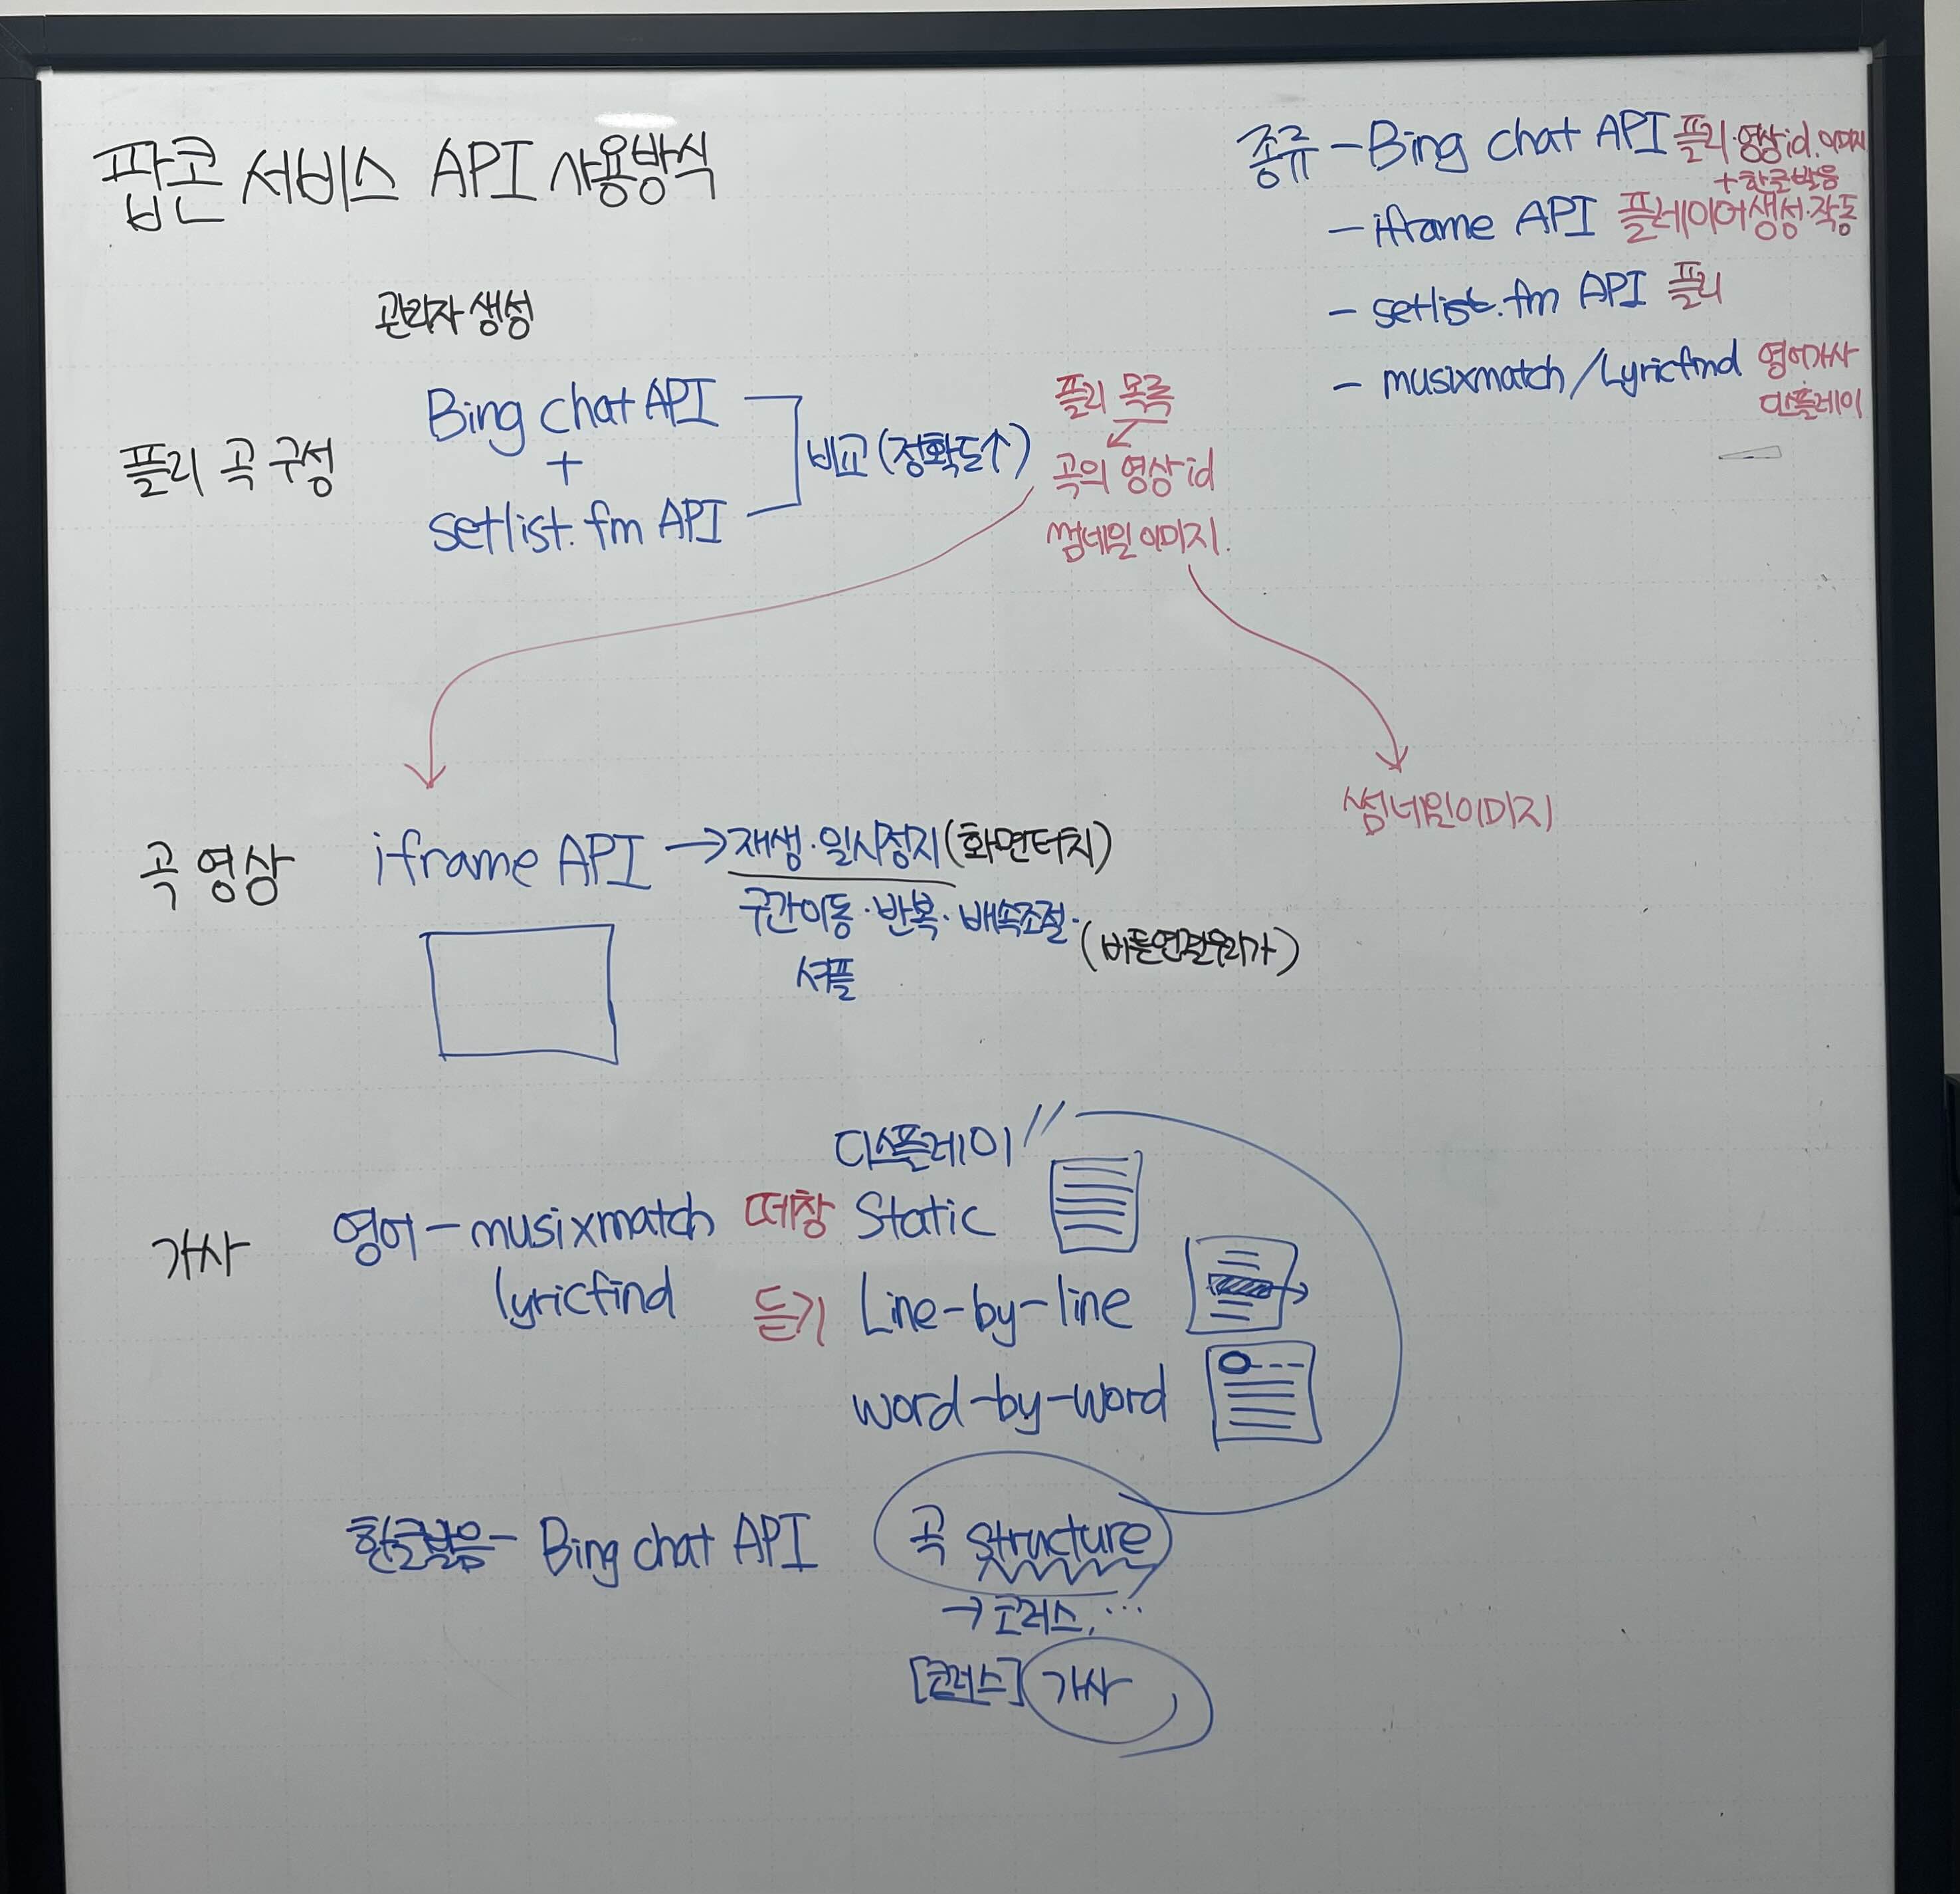 팝콘 서비스 API 사용방식
종류 - Bing chat API 플리·영상id·이미지
+한글발음
- iframe API 플레이어생성·작동
- setlist.fm API 플리
- musixmatch/Lyricfind 영어가사
디스플레이
관리자 생성
플리 곡 구성
Bing chat API
+
setlist.fm API
비교(정확도↑)
플리 목록
곡의 영상id
썸네일 이미지.
썸네일이미지
곡 영상
iframe API → 재생·일시정지(화면터치)
구간이동·반복·배속조절·
(버튼연결우리가)
셔플
가사
디스플레이
영어 - musixmatch
lyricfind
떼창 Static
듣기 Line-by-line
word-by-word
한글발음 - Bing chat API
곡 structure
→ 코러스, ...
[코러스] 가사